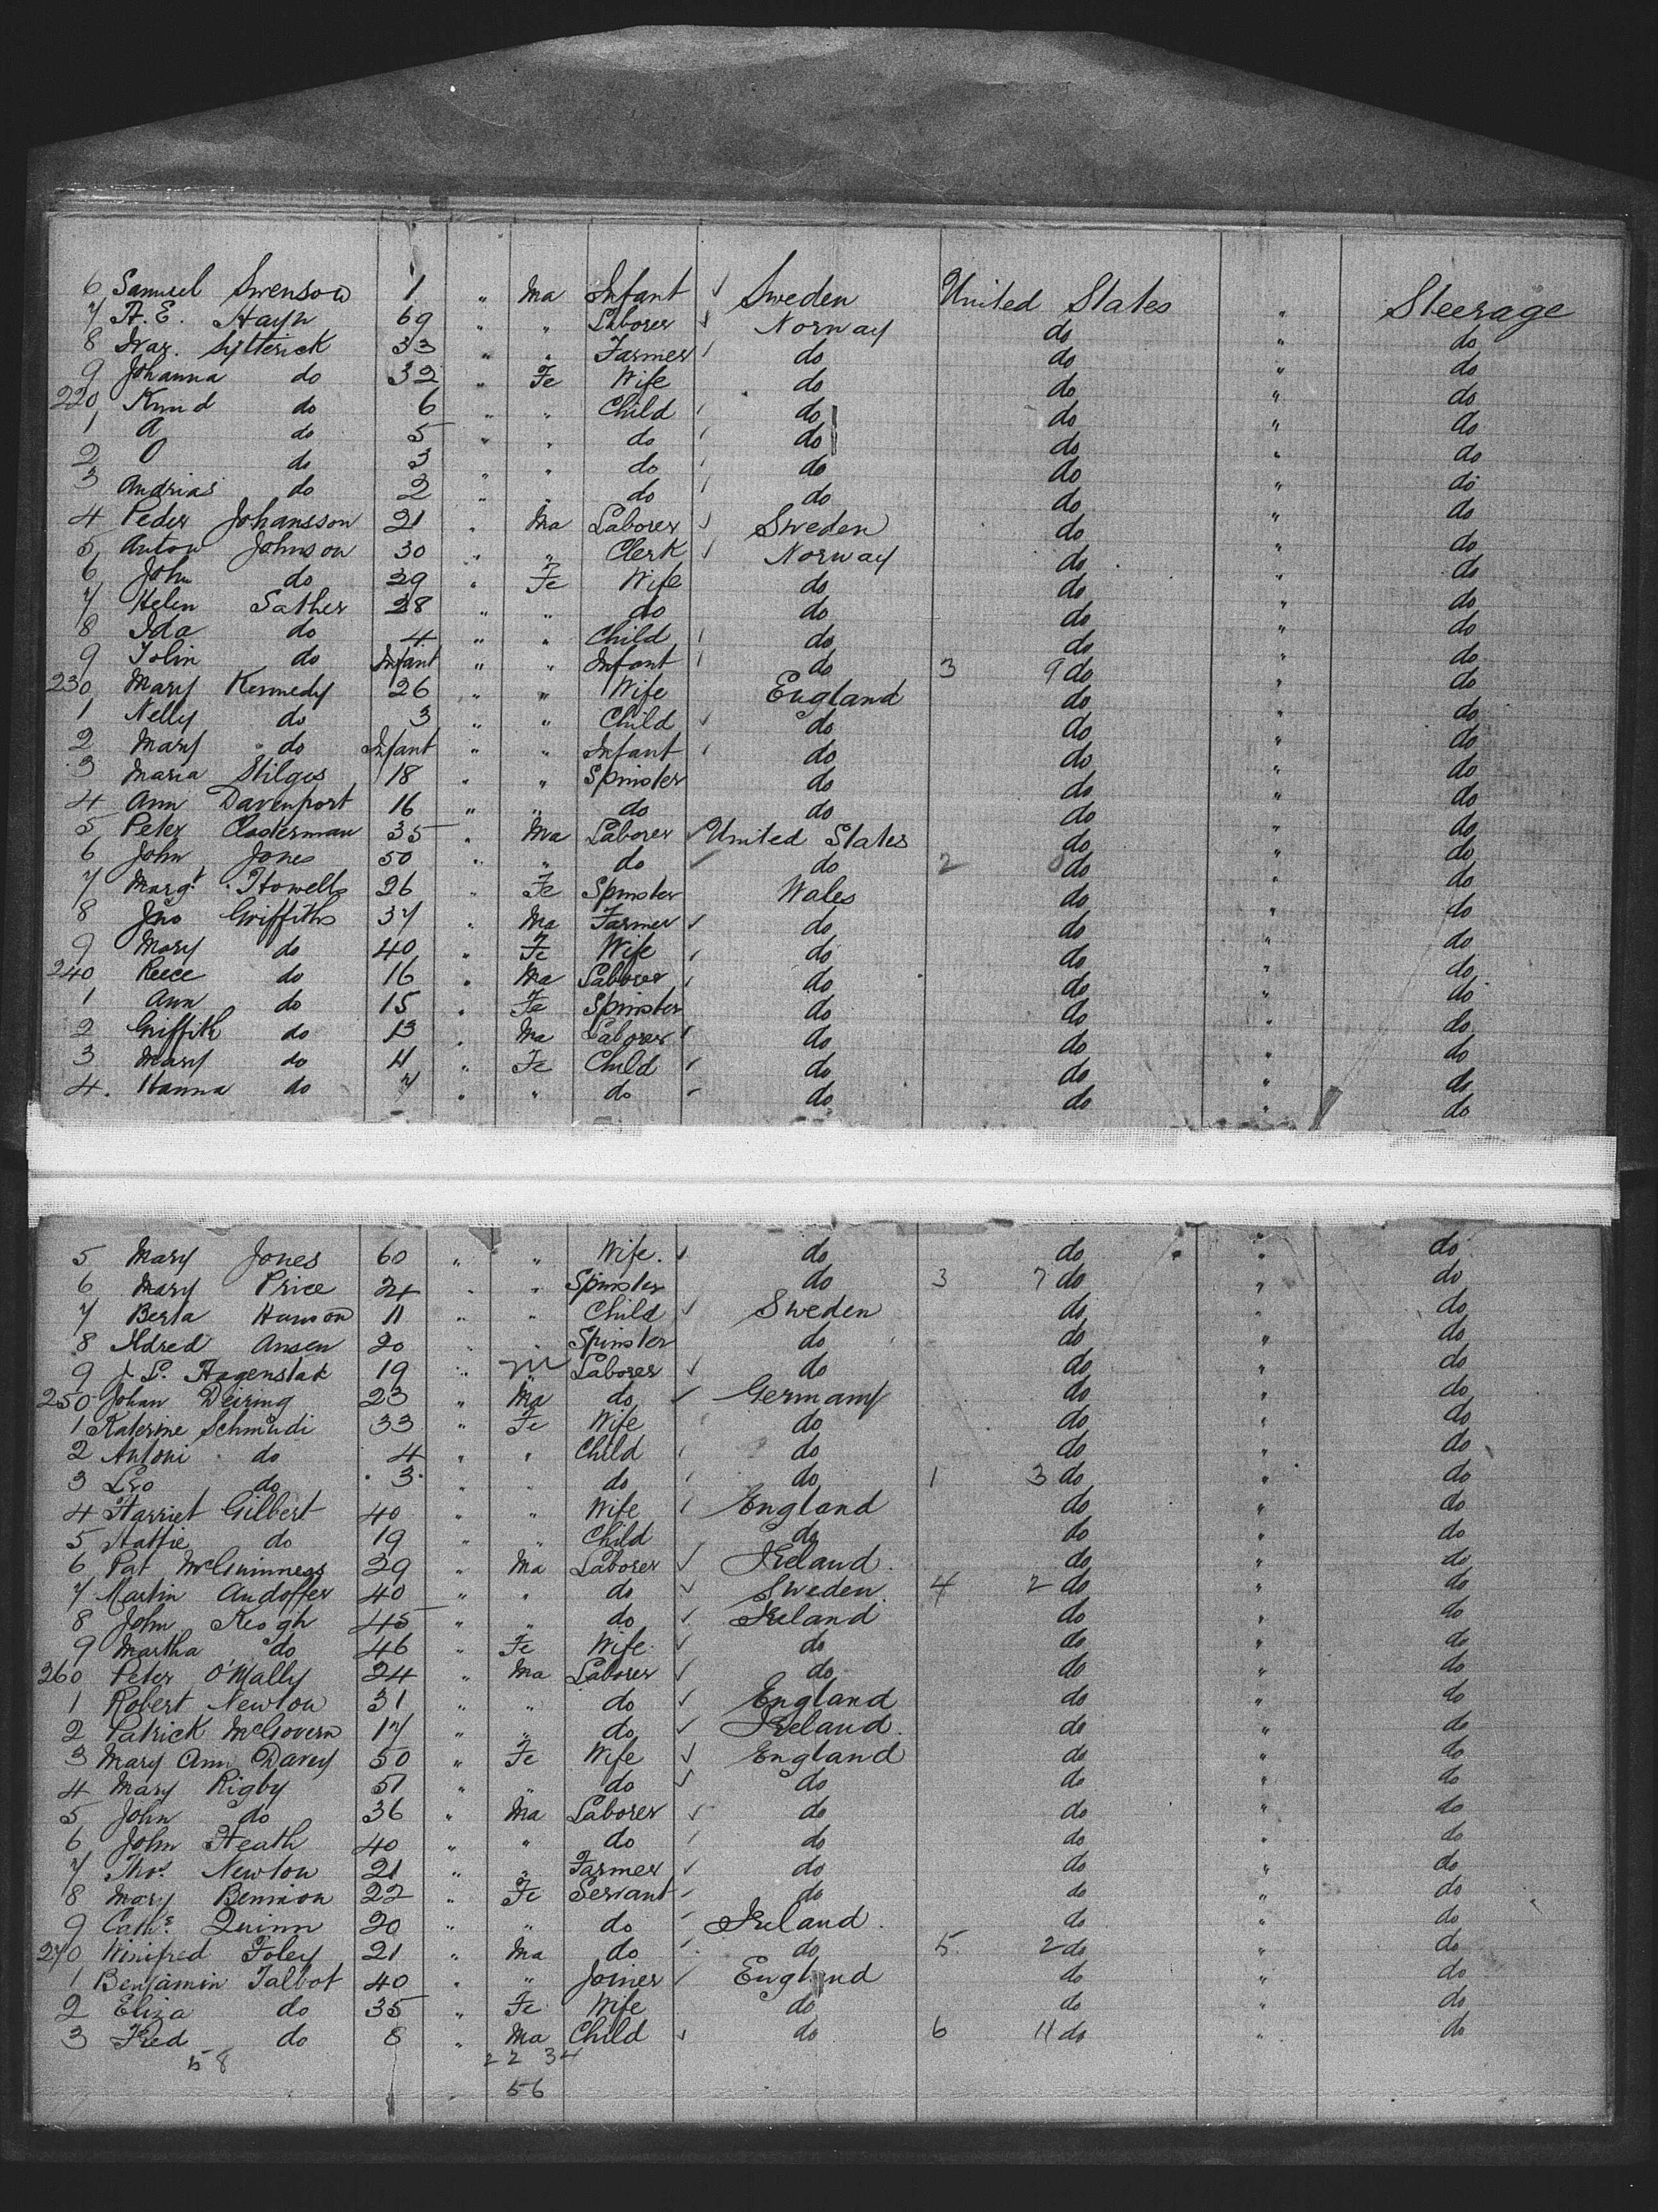 6 Samuel Swenson 1 " Ma Infant ✓ Sweden United States " Steerage
7 H. E. Hayn 69 " " Laborer ✓ Norway do " do
8 Ivar. Sytterick 33 " " Farmer do do " do
9 Johanna do 32 " Fe Wife do do " do
220 Knud do 6 " " Child do do " do
1 A do 5 " " do do do " do
2 O do 3 " " do do do " do
3 Andrias do 2 " " do do do " do
4 Peder Johansson 21 " Ma Laborer ✓ Sweden do " do
5 Anton Johnson 30 " " Clerk ✓ Norway do " do
6 John do 29 " Fe Wife do do " do
7 Helen Sather 28 " " do do do " do
8 Ida do 4 " " Child do do " do
9 do Infant " " Infant do 3 9 do " do
230 Mary Kennedy 26 " " Wife England do " do
1 Nelly do 3 " " Child ✓ do do " do
2 Mary do Infant " " Infant do do " do
3 Maria Stilges 18 " " Spinster do do " do
4 Ann Davenport 16 " " do do do " do
5 Peter Closterman 35 " Ma Laborer ✓ United States do " do
6 John Jones 50 " " do ✓ do 2 do " do
7 Margt. Howells 26 " Fe Spinster Wales do " do
8 Jno Griffiths 37 " Ma Farmer ✓ do do " do
9 Mary do 40 " Fe Wife do do " do
240 Reece do 16 " Ma Laborer do do " do
1 Ann do 15 " Fe Spinster do do " do
2 Griffith do 13 " Ma Laborer do do " do
3 Mary do 11 " Fe Child do do " do
4. Hanna do 7 " " do do do " do
5 Mary Jones 60 " " Wife. ✓ do do " do
6 Mary Price 24 " " Spinster do 3 7 do " do
7 Berta Hanson 11 " " Child ✓ Sweden do " do
8 Aldred Ansen 20 " " Spinster do do " do
9 J. L. Hagenstak 19 " M Laborer ✓ do do " do
250 Johan Deiring 23 " Ma do ✓ Germany do " do
1 Katerine Schmudi 33 " Fe Wife do do " do
2 Antoni do 4 " " Child do do " do
3 Leo do 3 " " do do 1 3 do " do
4 Harriet Gilbert 40 " " Wife England do " do
5 Hattie do 19 " " Child do do " do
6 Pat McGuinness 29 " Ma Laborer ✓ Ireland. do " do
7 Martin Andoffer 40 " " do ✓ Sweden. 4 2 do " do
8 John Keogh 45 " " do ✓ Ireland do " do
9 Martha do 46 " Fe Wife ✓ do do " do
260 Peter O'Mally 24 " Ma Laborer ✓ do do " do
1 Robert Newton 31 " " do ✓ England do " do
2 Patrick McGovern 17 " " do ✓ Ireland. do " do
3 Mary Ann Davey 50 " Fe Wife ✓ England do " do
4 Mary Rigby 51 " " do ✓ do do " do
5 John do 36 " Ma Laborer ✓ do do " do
6 John Heath 40 " " do do do " do
7 Thos. Newton 21 " " Farmer ✓ do do " do
8 Mary Bennion 22 " Fe Servant do do " do
9 Cathe Quinn 20 " " do Ireland. do " do
270 Winifred Foley 21 " Ma do do 5 2 do " do
1 Benjamin Talbot 40 " " Joiner England do " do
2 Eliza do 35 " Fe Wife do do " do
3 Fred do 8 " Ma Child ✓ do 6 11 do " do
58 22 34
56